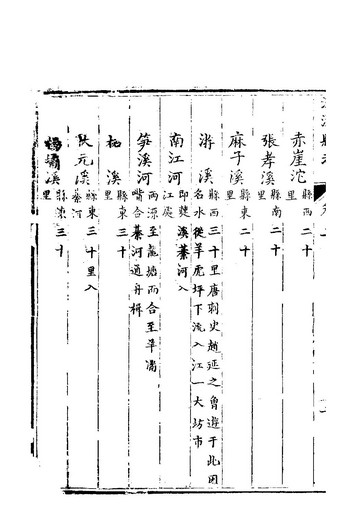 赤崖沱 縣西二十里
張孝溪 縣南二十里
麻子溪 縣東二十里
游溪 縣西三十里唐刺史趙延之曽遊于此因名水從羊虎坪下流入江一大坊市
南江河 即夔溪綦河入江處
笋溪河 兩源至龍塘而合至羊灣嘴合綦河通舟楫
杻溪 縣東三十里
狀元溪 縣東三十里入綦河
縣東三十里